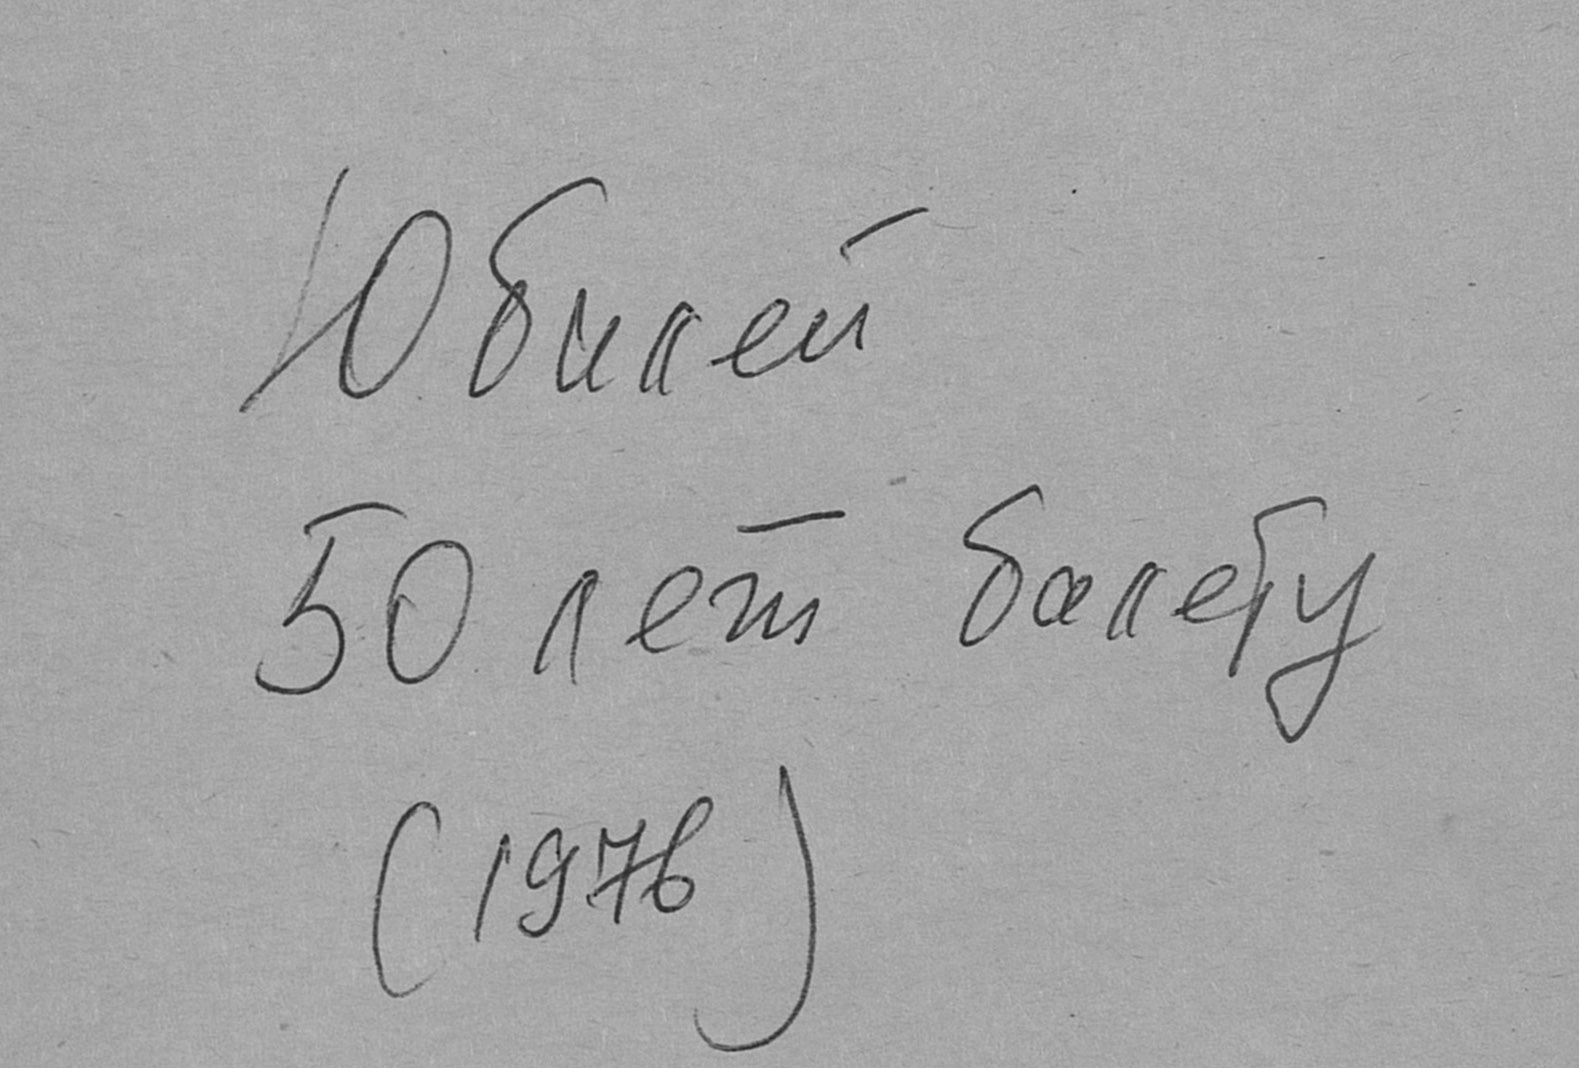 Юбилей
50 лет балету
(1976)